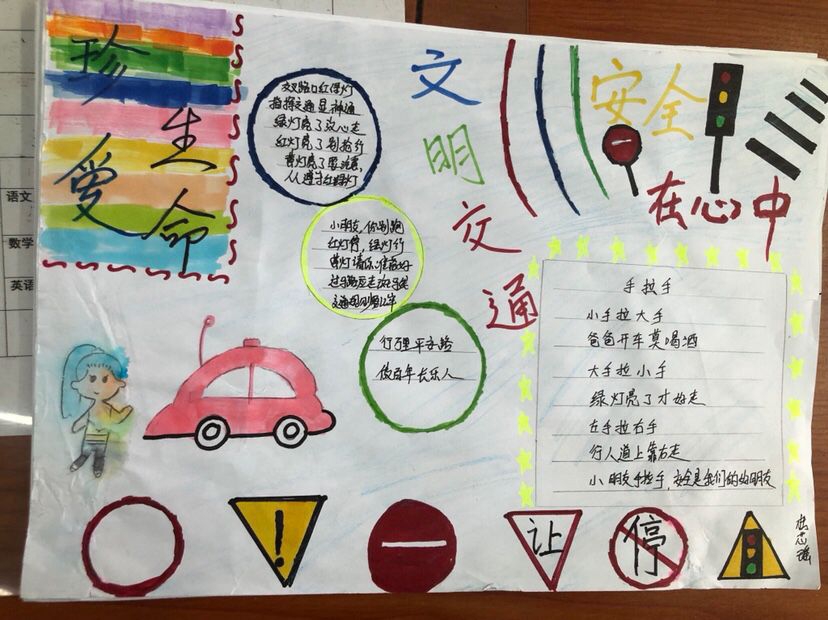 珍爱
生命
文明交通
安全
在心中
交叉路口红绿灯
指挥交通显神通
绿灯亮了放心走
红灯亮了别抢行
黄灯亮了要注意
人人遵守红绿灯
小朋友,你别跑
红灯停,绿灯行
黄灯请你准备好
过马路应走
行万里平安路
做百年长乐人
手拉手
小手拉大手
爸爸开车莫喝酒
大手拉小手
绿灯亮了才好走
左手拉右手
行人道上靠右走
小朋友手拉手,安全是我们的好朋友
!
让
停
语文
数学
英语